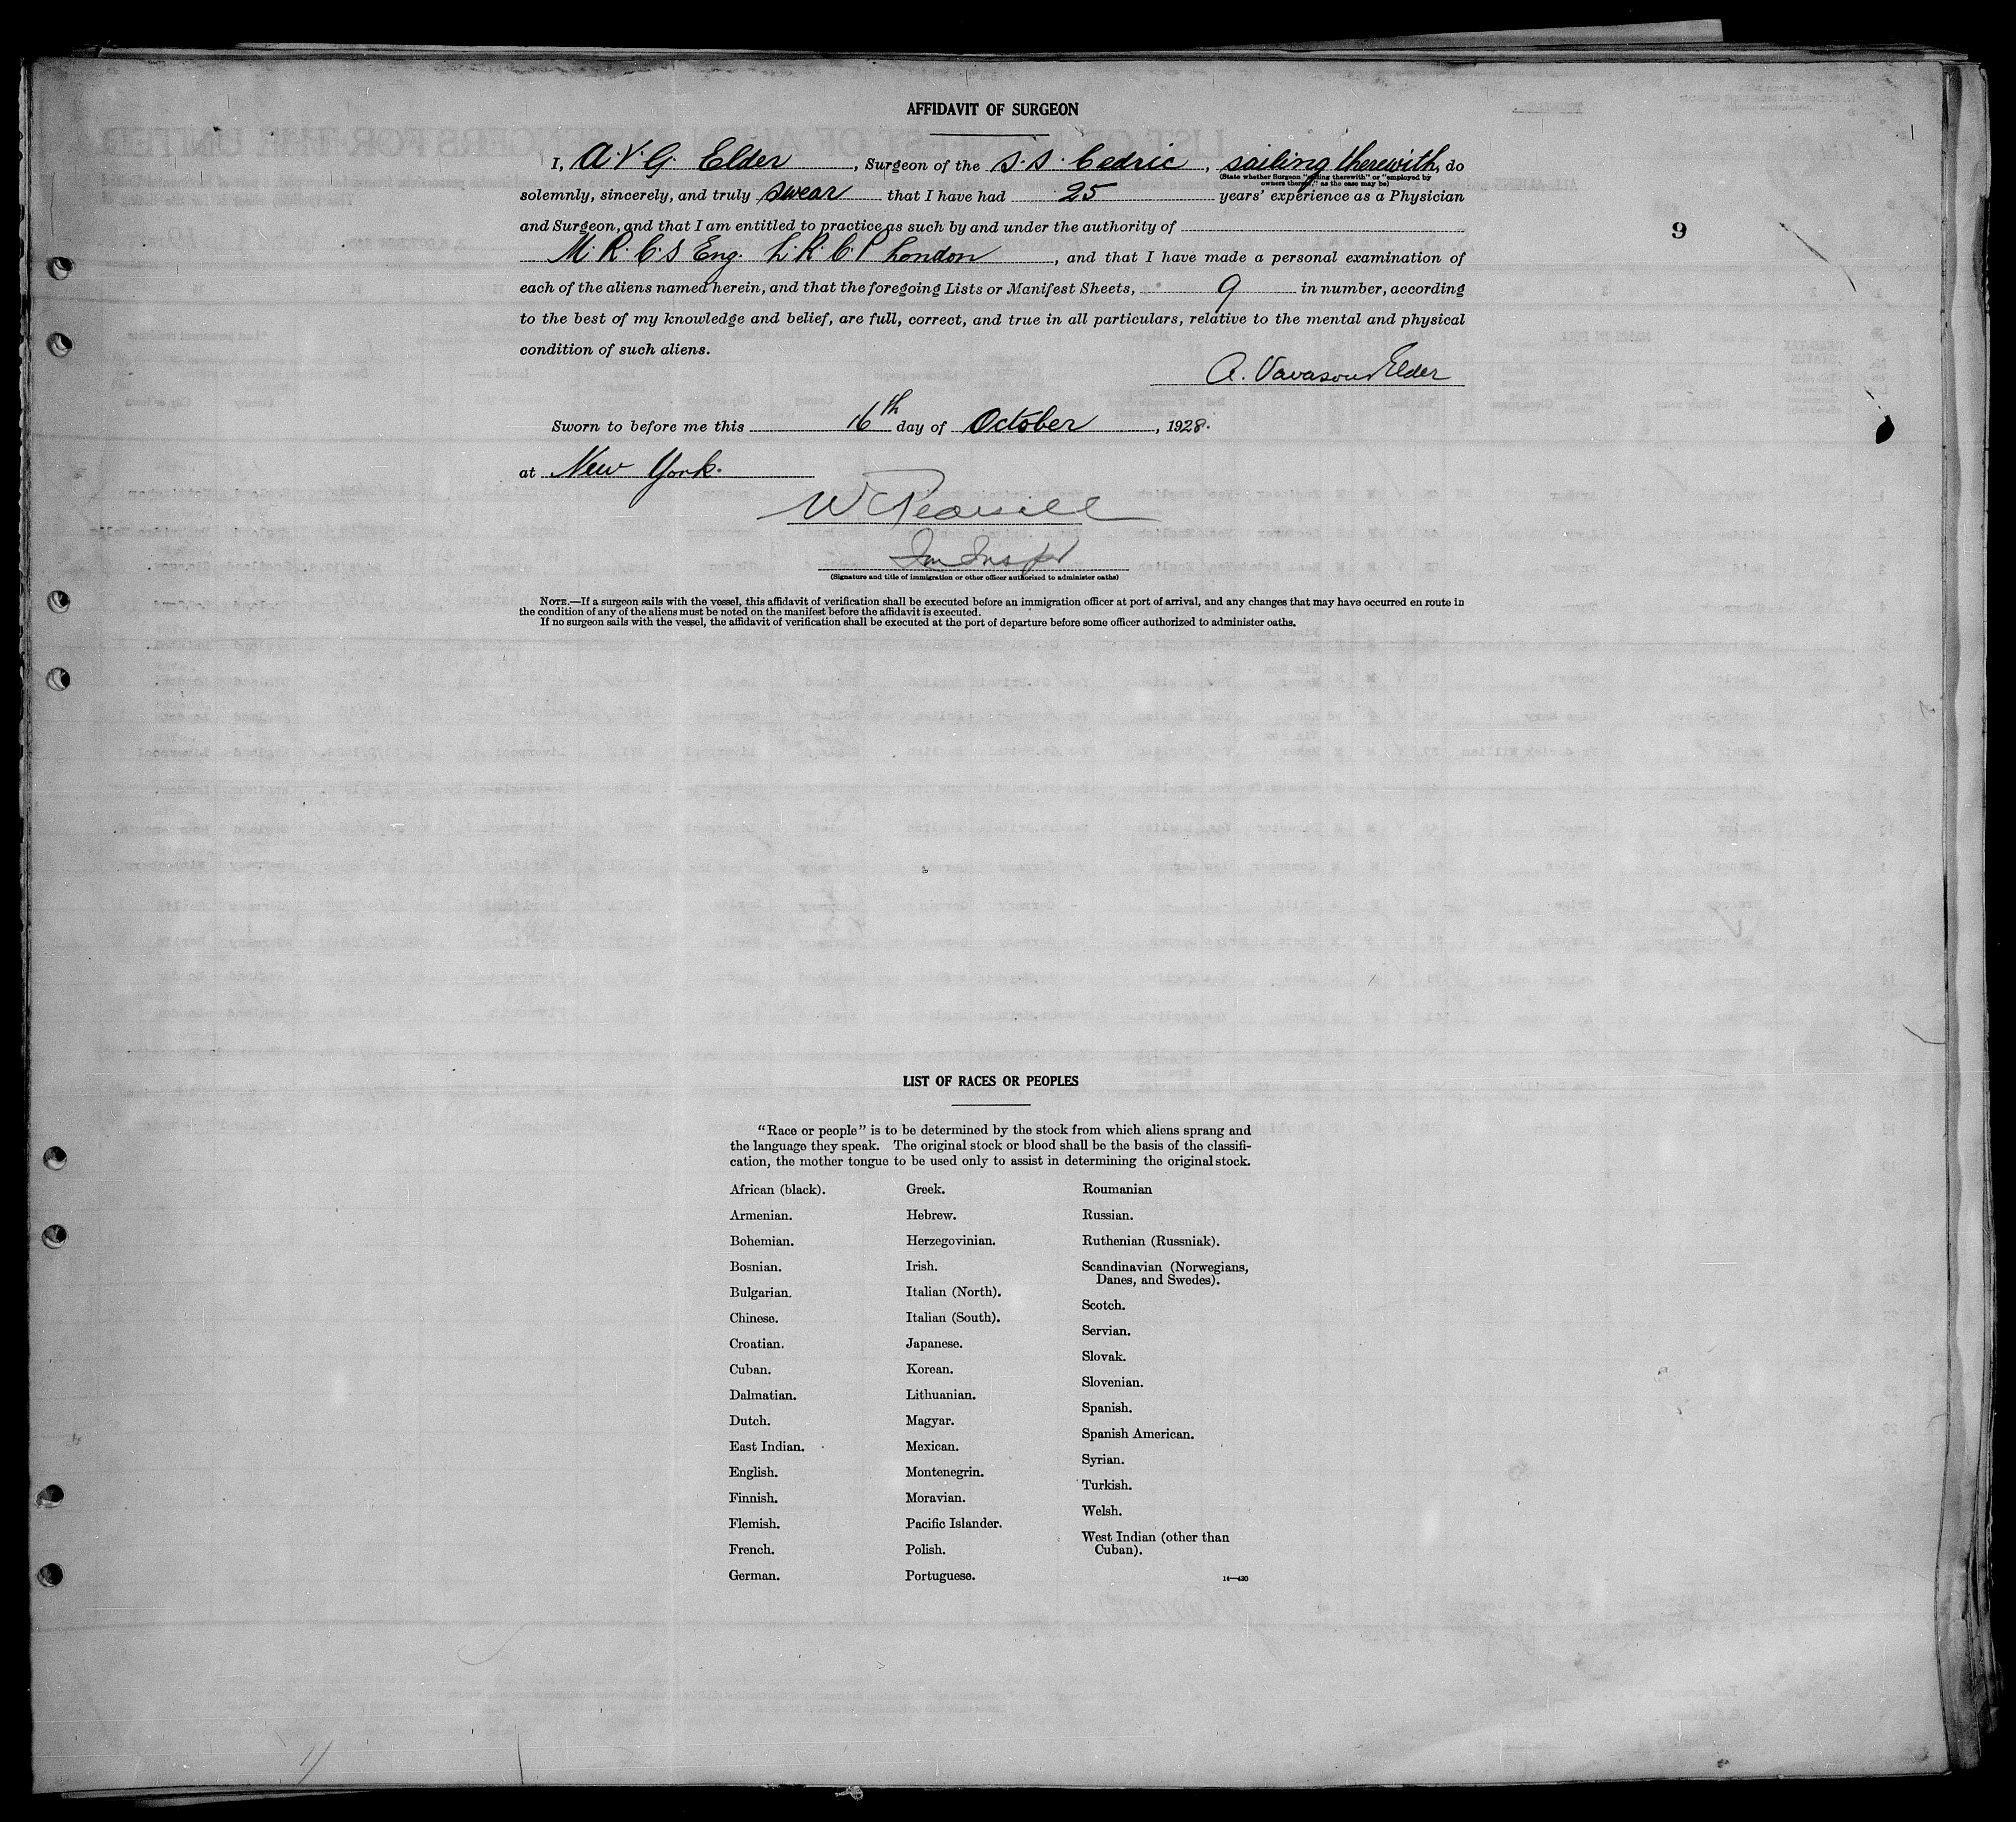 AFFIDAVIT OF SURGEON
I, A. V. G. Elder, Surgeon of the S. S. Cedric, sailing therewith, do
(State whether Surgeon "sailing therewith" or "employed by
owners thereof," as the case may be)
solemnly, sincerely, and truly swear that I have had 25 years' experience as a Physician
and Surgeon, and that I am entitled to practice as such by and under the authority of
M. R. C. S Eng. L. R. C. P London, and that I have made a personal examination of
each of the aliens named herein, and that the foregoing Lists or Manifest Sheets, 9 in number, according
to the best of my knowledge and belief, are full, correct, and true in all particulars, relative to the mental and physical
condition of such aliens.
A. Vavasour Elder
Sworn to before me this 16th day of October, 1928.
at New York.
W
(Signature and title of immigration or other officer authorized to administer oaths)
NOTE.—If a surgeon sails with the vessel, this affidavit of verification shall be executed before an immigration officer at port of arrival, and any changes that may have occurred en route in
the condition of any of the aliens must be noted on the manifest before the affidavit is executed.
If no surgeon sails with the vessel, the affidavit of verification shall be executed at the port of departure before some officer authorized to administer oaths.
9
LIST OF RACES OR PEOPLES
"Race or people" is to be determined by the stock from which aliens sprang and
the language they speak. The original stock or blood shall be the basis of the classifi-
cation, the mother tongue to be used only to assist in determining the original stock.
African (black).
Armenian.
Bohemian.
Bosnian.
Bulgarian.
Chinese.
Croatian.
Cuban.
Dalmatian.
Dutch.
East Indian.
English.
Finnish.
Flemish.
French.
German.
Greek.
Hebrew.
Herzegovinian.
Irish.
Italian (North).
Italian (South).
Japanese.
Korean.
Lithuanian.
Magyar.
Mexican.
Montenegrin.
Moravian.
Pacific Islander.
Polish.
Portuguese.
Roumanian
Russian.
Ruthenian (Russniak).
Scandinavian (Norwegians,
Danes, and Swedes).
Scotch.
Servian.
Slovak.
Slovenian.
Spanish.
Spanish American.
Syrian.
Turkish.
Welsh.
West Indian (other than
Cuban).
14—430